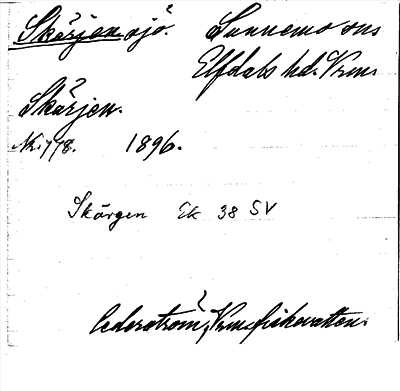 Skärjen sjö. Sunnemo sns
Elfdals hd. Vrm.
Skärjen.
Nr. 178. 1896.
Skärgen Ek 38 SV
Cederström, Vrms fiskevatten.